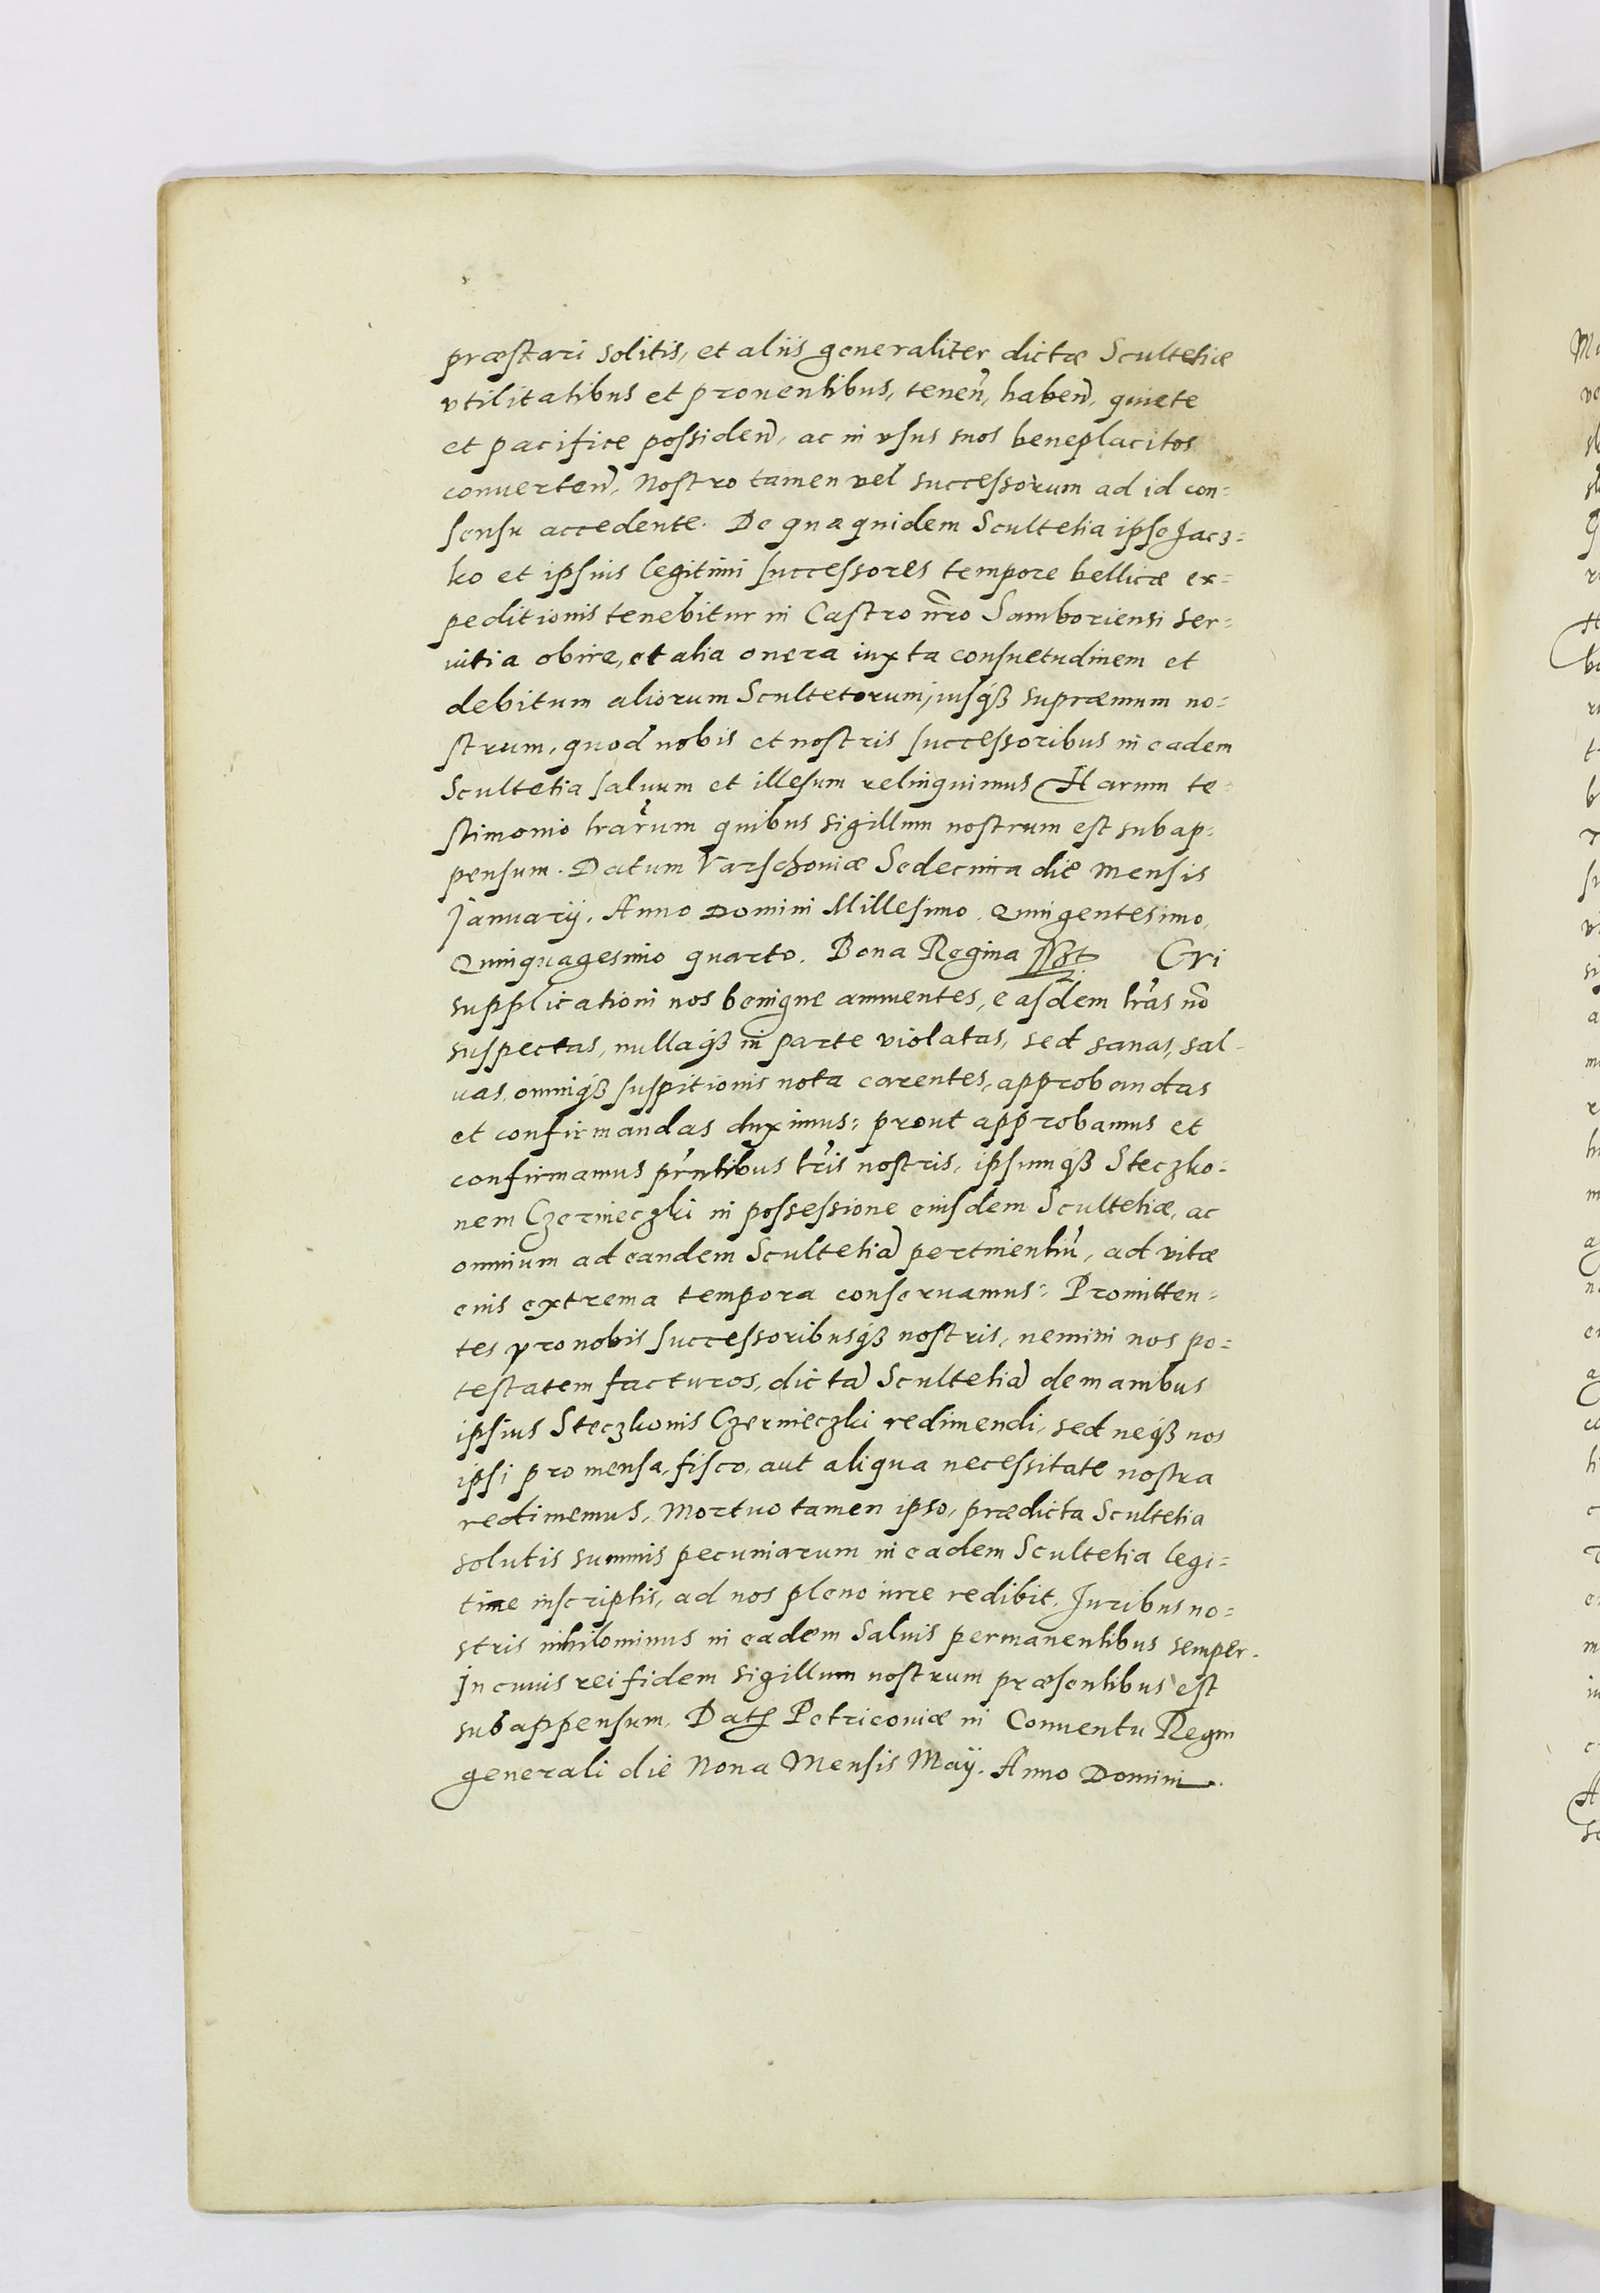 præstari solitis, et aliis generaliter dictæ Scultetiæ
vtilitatibus et prouentibus, tenen̄, haben̄, quiete
et pacifice possiden̄, ac in vsus suos beneplacitos
conuerten̄, Nostro tamen vel successorum ad id con=
sensu accedente. De qua quidem Scultetia ipse Jacz=
ko et ipsius legitimi successores tempore bellicæ ex=
peditionis tenebitur in Castro nr̄o Samboriensi ser=
uitia obire, et alia onera iuxta consuetudinem et
debitum aliorum Scultetorum, iusq́ȝ supræmum no=
strum, quod nobis et nostris successoribus in eadem
Scultetia saluum et illesum relinquimus Harum te=
stimonio lrārum quibus sigillum nostrum est subap=
pensum. Datum Varschouiæ Sedecima die mensis
Januarij. Anno Domini Millesimo, Quingentesimo,
Quinquagesimo quarto. Bona Regina sst Cui
supplicationi nos benigne annuentes, easdem lrās nō
suspectas, nullaq́ȝ in parte violatas, sed sanas, sal=
uas, omniq́ȝ suspitionis nota carentes, approbandas
et confirmandas duximus: prout approbamus et
confirmamus pr̄ntibus lrīs nostris, ipsumq́ȝ Steczko=
nem Czernieczki in possessione eiusdem Scultetiæ, ac
omnium ad eandem Scultetiā pertinentiū, ad vitæ
eius extrema tempora conseruamus: Promitten=
tes pro nobis successoribusq́ȝ nostris, nemini nos po=
testatem facturos, dictā Scultetiā de manibus
ipsius Steczkonis Czernieczki redimendi, sed neq́ȝ nos
ipsi pro mensa, fisco, aut aliqua necessitate nostra
redimemus, Mortuo tamen ipso, prædicta Scultetia
solutis summis pecuniarum in eadem Scultetia legi=
time inscriptis, ad nos pleno iure redibit, Juribus no=
stris nihilominus in eadem saluis permanentibus semper.
In cuius rei fidem sigillum nostrum præsentibus est
subappensum. Datꝭ Petricouiæ in Conuentu Regni
generali die Nona Mensis Maij. Anno Domini